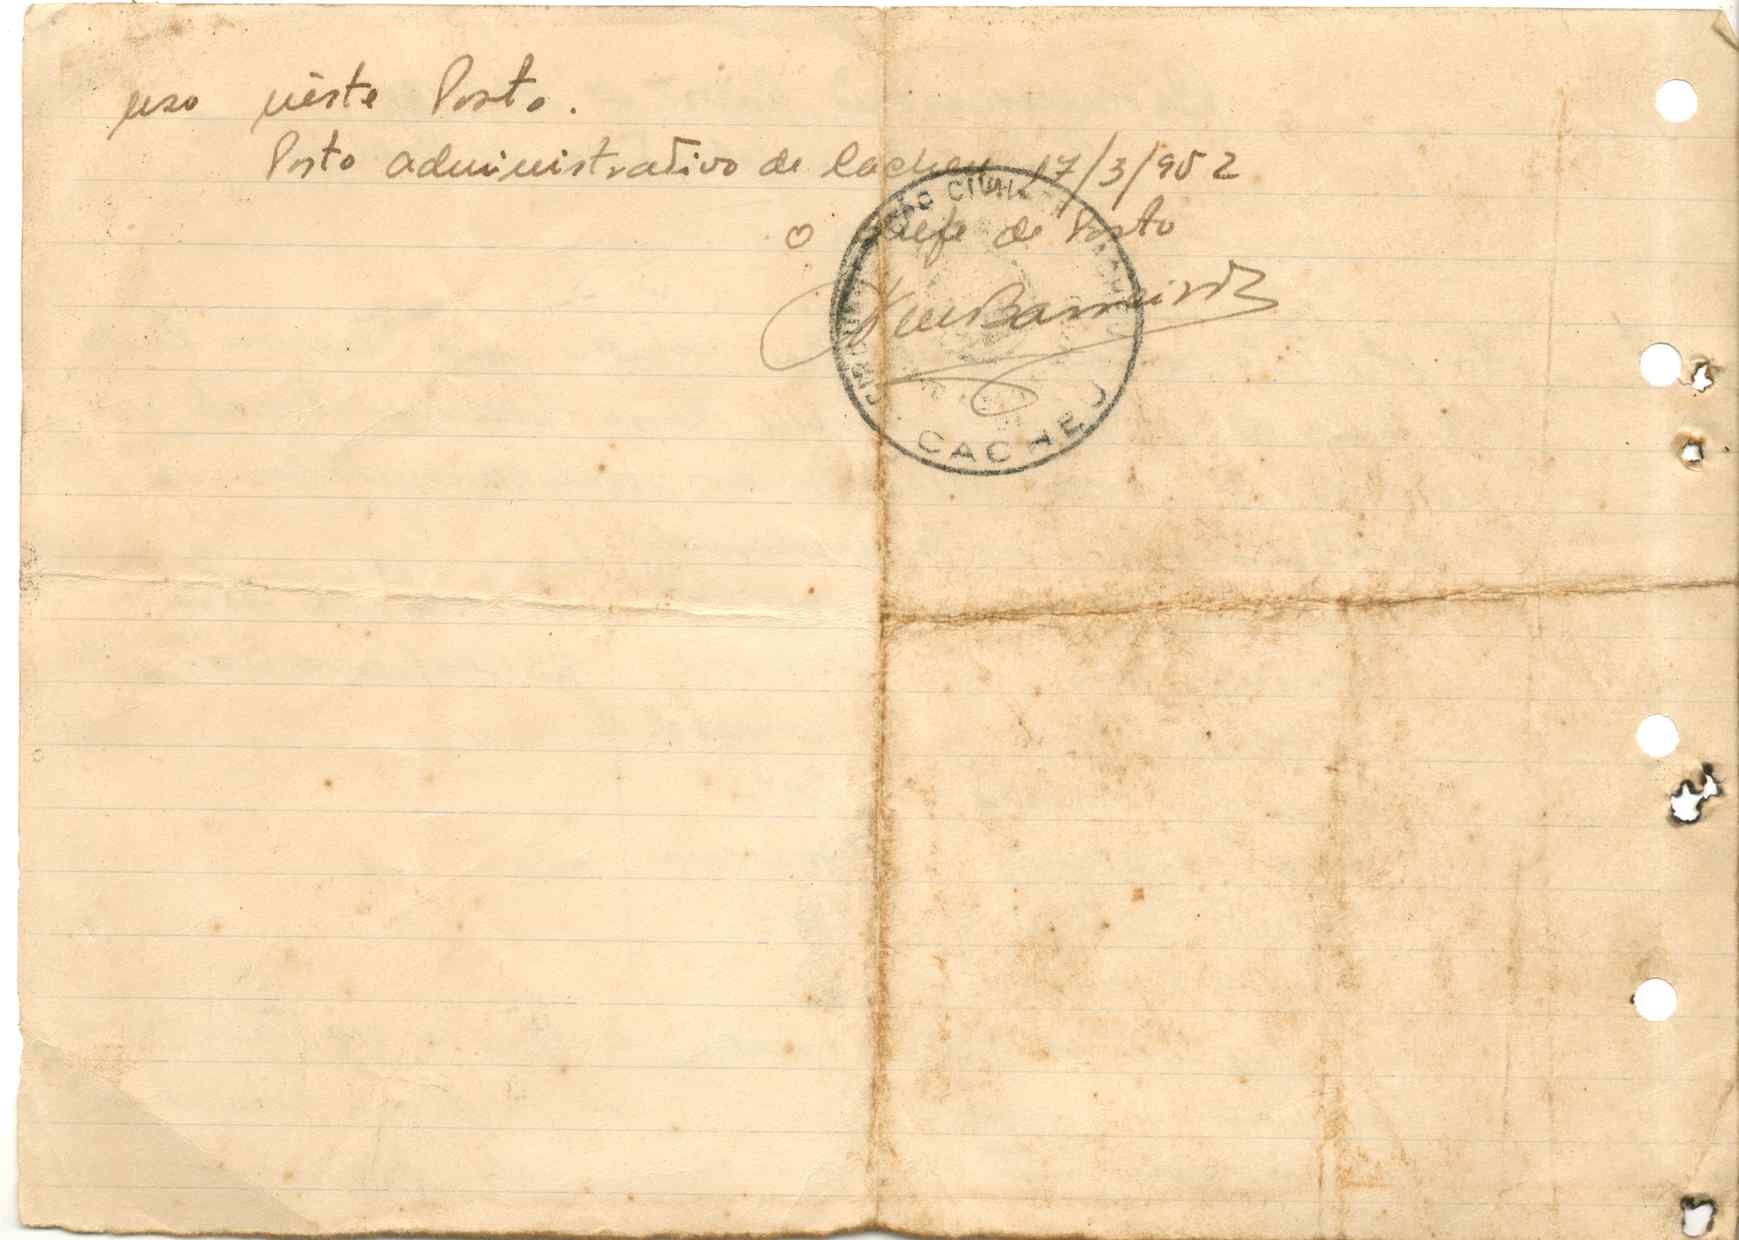 uso nêste Posto.
Posto administrativo de Cacheu 17/3/952
O Chefe de Posto
CACHEU